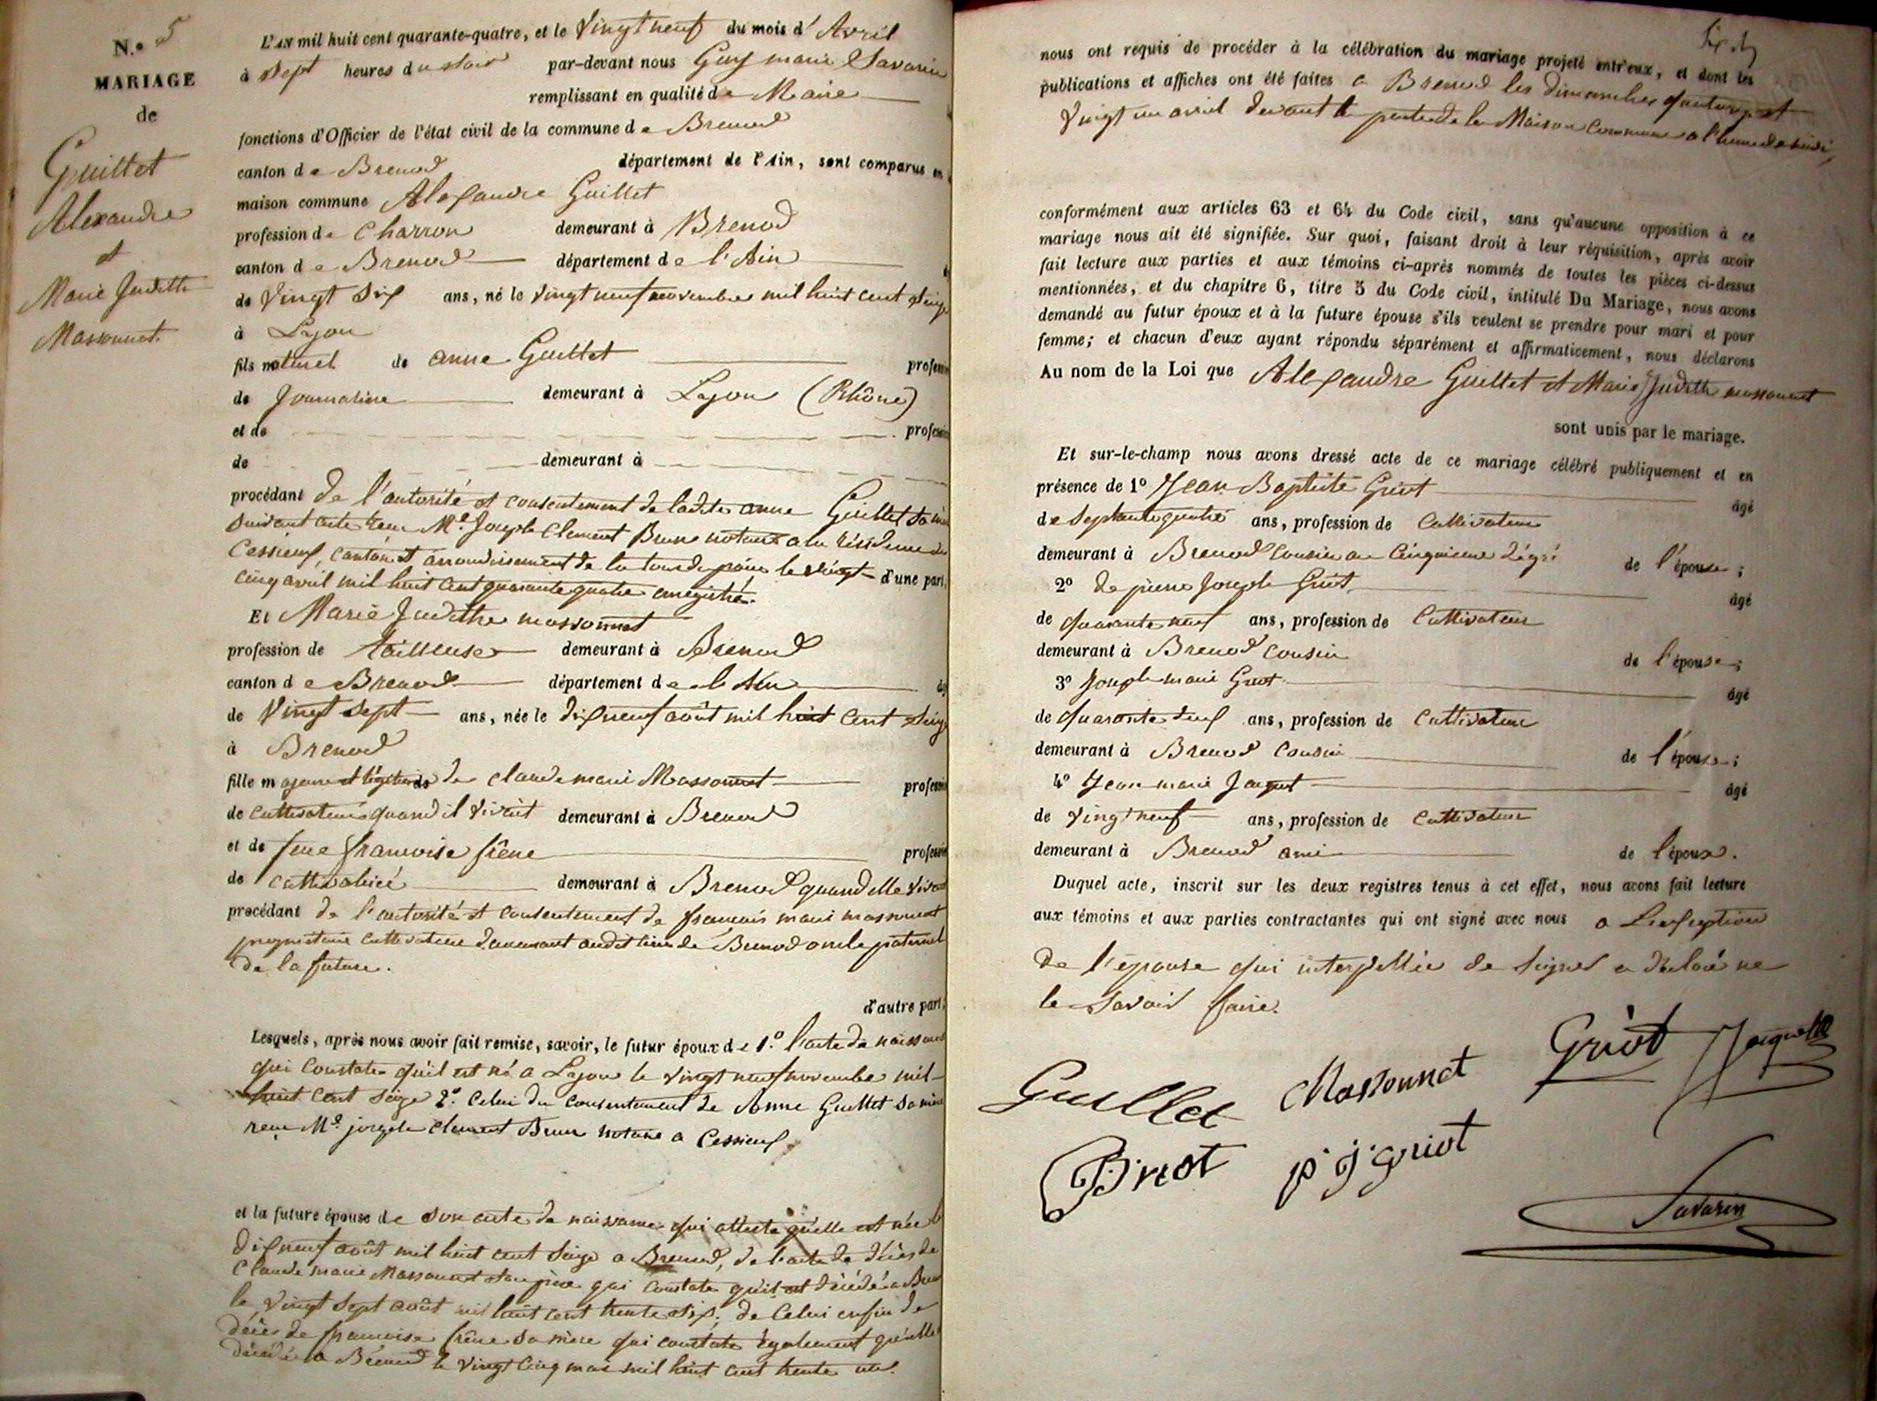 N.° 5
MARIAGE
de
Guillet
Alexandre
et
Marie Judith
Massonnet.
L'AN mil huit cent quarante-quatre, et le vingt neuf du mois d'Avril
à sept heures du soir par-devant nous Guy marie Savarin
remplissant en qualité de Maire
fonctions d'Officier de l'état civil de la commune de Brenod
canton de Brenod département de l'Ain, sont comparus en
maison commune Alexandre Guillet
profession de Charron demeurant à Brenod
canton de Brenod département de l'Ain
de vingt six ans, né le vingt neuf novembre mil huit cent seize
à Lyon
fils naturel de anne Guillet profession
de Journalière demeurant à Lyon (Rhône)
et de profession
de demeurant à
procédant de l'autorité et consentement de ladite anne Guillet sa mère
suivant acte reçu Me. Joseph Clement Brun notaire a la résidence de
Cessieux, canton et arrondissement de la tour du pin le vingt d'une part,
cinq avril mil huit cent quarante quatre enregistré.
Et Marie Judithe massonnet
profession de tailleuse demeurant à Brenod
canton de Brenod département de l'Ain
de vingt sept ans, née le dix neuf août mil huit cent seize
à Brenod
fille majeure et légitime de claude marie Massonnet profession
de cultivateur quand il vivait demeurant à Brenod
et de feue francoise frène profession
de cultivatrice demeurant à Brenod quand elle vivait
procédant de l'autorité et consentement de françois marie massonnet
propriétaire cultivateur demeurant audit lieu de Brenod oncle paternel
de la future.
d'autre part;
Lesquels, après nous avoir fait remise, savoir, le futur époux de 1.° l'acte de naissance
qui constate qu'il est né a Lyon le vingt neuf novembre mil
huit cent seize 2.° celui du consentement de Anne Guillet sa mère
reçu Me. joseph clement Brun notaire a Cessieux
et la future épouse de son acte de naissance qui atteste qu'elle est née le
dix neuf août mil huit cent seize a Brenod, de l'acte de décès de
Claude marie Massonnet son père qui constate qu'il est décédé a Brenod
le vingt sept août mil huit cent trente six; de celui enfin de
décès de francoise frène sa mère qui constate également qu'elle
décédée a Brenod le vingt cinq mai mil huit cent trente un.
nous ont requis de procéder à la célébration du mariage projeté entr'eux, et dont les
publications et affiches ont été faites a Brenod les dimanches quatorze et
vingt un avril devant la porte de la Maison commune a l'heure de midi,
conformément aux articles 63 et 64 du Code civil, sans qu'aucune opposition à ce
mariage nous ait été signifiée. Sur quoi, faisant droit à leur réquisition, après avoir
fait lecture aux parties et aux témoins ci-après nommés de toutes les pièces ci-dessus
mentionnées, et du chapitre 6, titre 5 du Code civil, intitulé Du Mariage, nous avons
demandé au futur époux et à la future épouse s'ils veulent se prendre pour mari et pour
femme; et chacun d'eux ayant répondu séparément et affirmativement, nous déclarons
Au nom de la Loi que Alexandre Guillet et Marie Judith massonnet
sont unis par le mariage.
Et sur-le-champ nous avons dressé acte de ce mariage célébré publiquement et en
présence de 1° Jean Baptiste Griot âgé
de septante quatre ans, profession de Cultivateur
demeurant à Brenod cousin au cinquième dégré de l'épouse;
2° de pierre Joseph Griot âgé
de quarante neuf ans, profession de Cultivateur
demeurant à Brenod cousin de l'épouse;
3° Joseph marie Griot âgé
de quarante deux ans, profession de cultivateur
demeurant à Brenod cousin de l'épouse;
4° Jean marie Jorquet âgé
de vingt neuf ans, profession de Cultivateur
demeurant à Brenod ami de l'époux.
Duquel acte, inscrit sur les deux registres tenus à cet effet, nous avons fait lecture
aux témoins et aux parties contractantes qui ont signé avec nous a L'exception
de l'épouse qui interpellée de signer a déclaré ne
le savoir faire.
Guillet Massonnet Griot
P J griot
Savarin